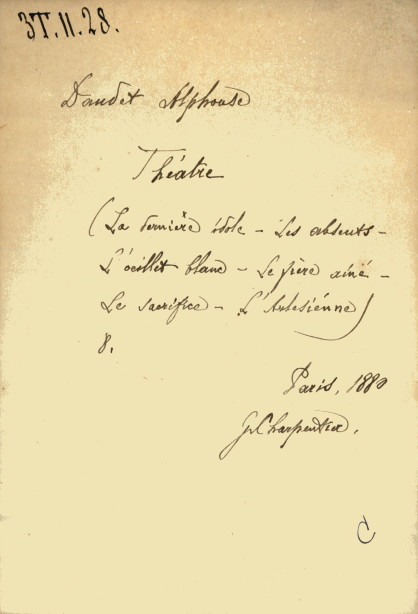 3T.II.28.
Daudet Alphonse
Théâtre
(La dernière idole - Les absents -
L'oeillet blanc - Le frère ainé -
Le sacrifice - L'Artesiénne)
8.
Paris, 1880
G. Charpentier.
C